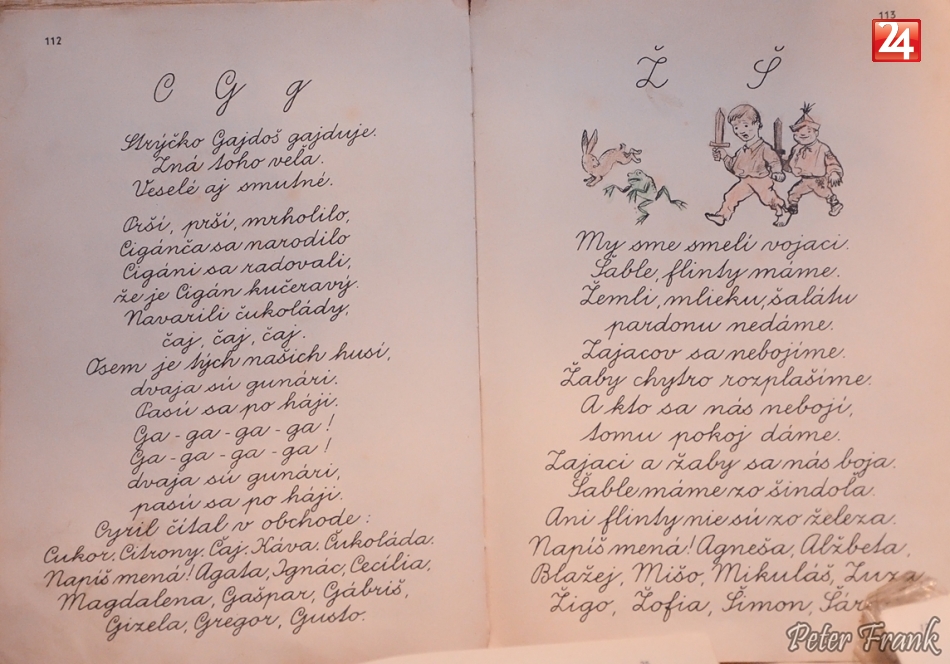 112
C G g
Strýčko Gajdoš gajduje.
Zná toho veľa.
Veselé aj smutné.
Prší, prší, mrholilo,
Cigánča sa narodilo
Cigáni sa radovali,
že je Cigán kučeravý.
Navarili čukolády,
čaj, čaj, čaj.
Osem je tých našich husí,
dvaja sú gunári.
Pasú sa po háji.
Ga-ga-ga-ga!
Ga-ga-ga-ga!
dvaja sú gunári,
pasú sa po háji.
Cyril čítal v obchode:
Cukor. Citróny. Čaj. Káva. Čukoláda.
Napíš mená! Agata, Ignác, Cecília,
Magdalena, Gašpar, Gábriš,
Gizela, Gregor, Gusto.
113
24
Ž Š
My sme smelí vojaci.
Šable, flinty máme.
Žemli, mlieku, šalátu
pardonu nedáme.
Zajacov sa nebojíme.
Žaby chytro rozplašíme.
A kto sa nás nebojí,
tomu pokoj dáme.
Zajaci a žaby sa nás boja.
Šable máme zo šindoľa.
Ani flinty nie sú zo železa.
Napíš mená! Agneša, Alžbeta,
Blažej, Mišo, Mikuláš, Zuza
Žigo, Žofia, Šimon,
Peter Frank